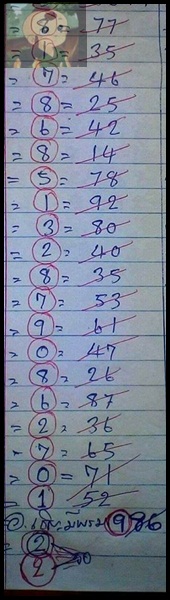 = 8 = 77
= 1 = 35
= 7 = 46
= 8 = 25
= 6 = 42
= 8 = 14
= 5 = 78
= 1 = 92
= 3 = 80
= 2 = 40
= 8 = 35
= 7 = 53
= 9 = 61
= 0 = 47
= 8 = 26
= 6 = 87
= 2 = 36
= 7 = 65
= 0 = 71
= 1 = 52
986
= 2
2